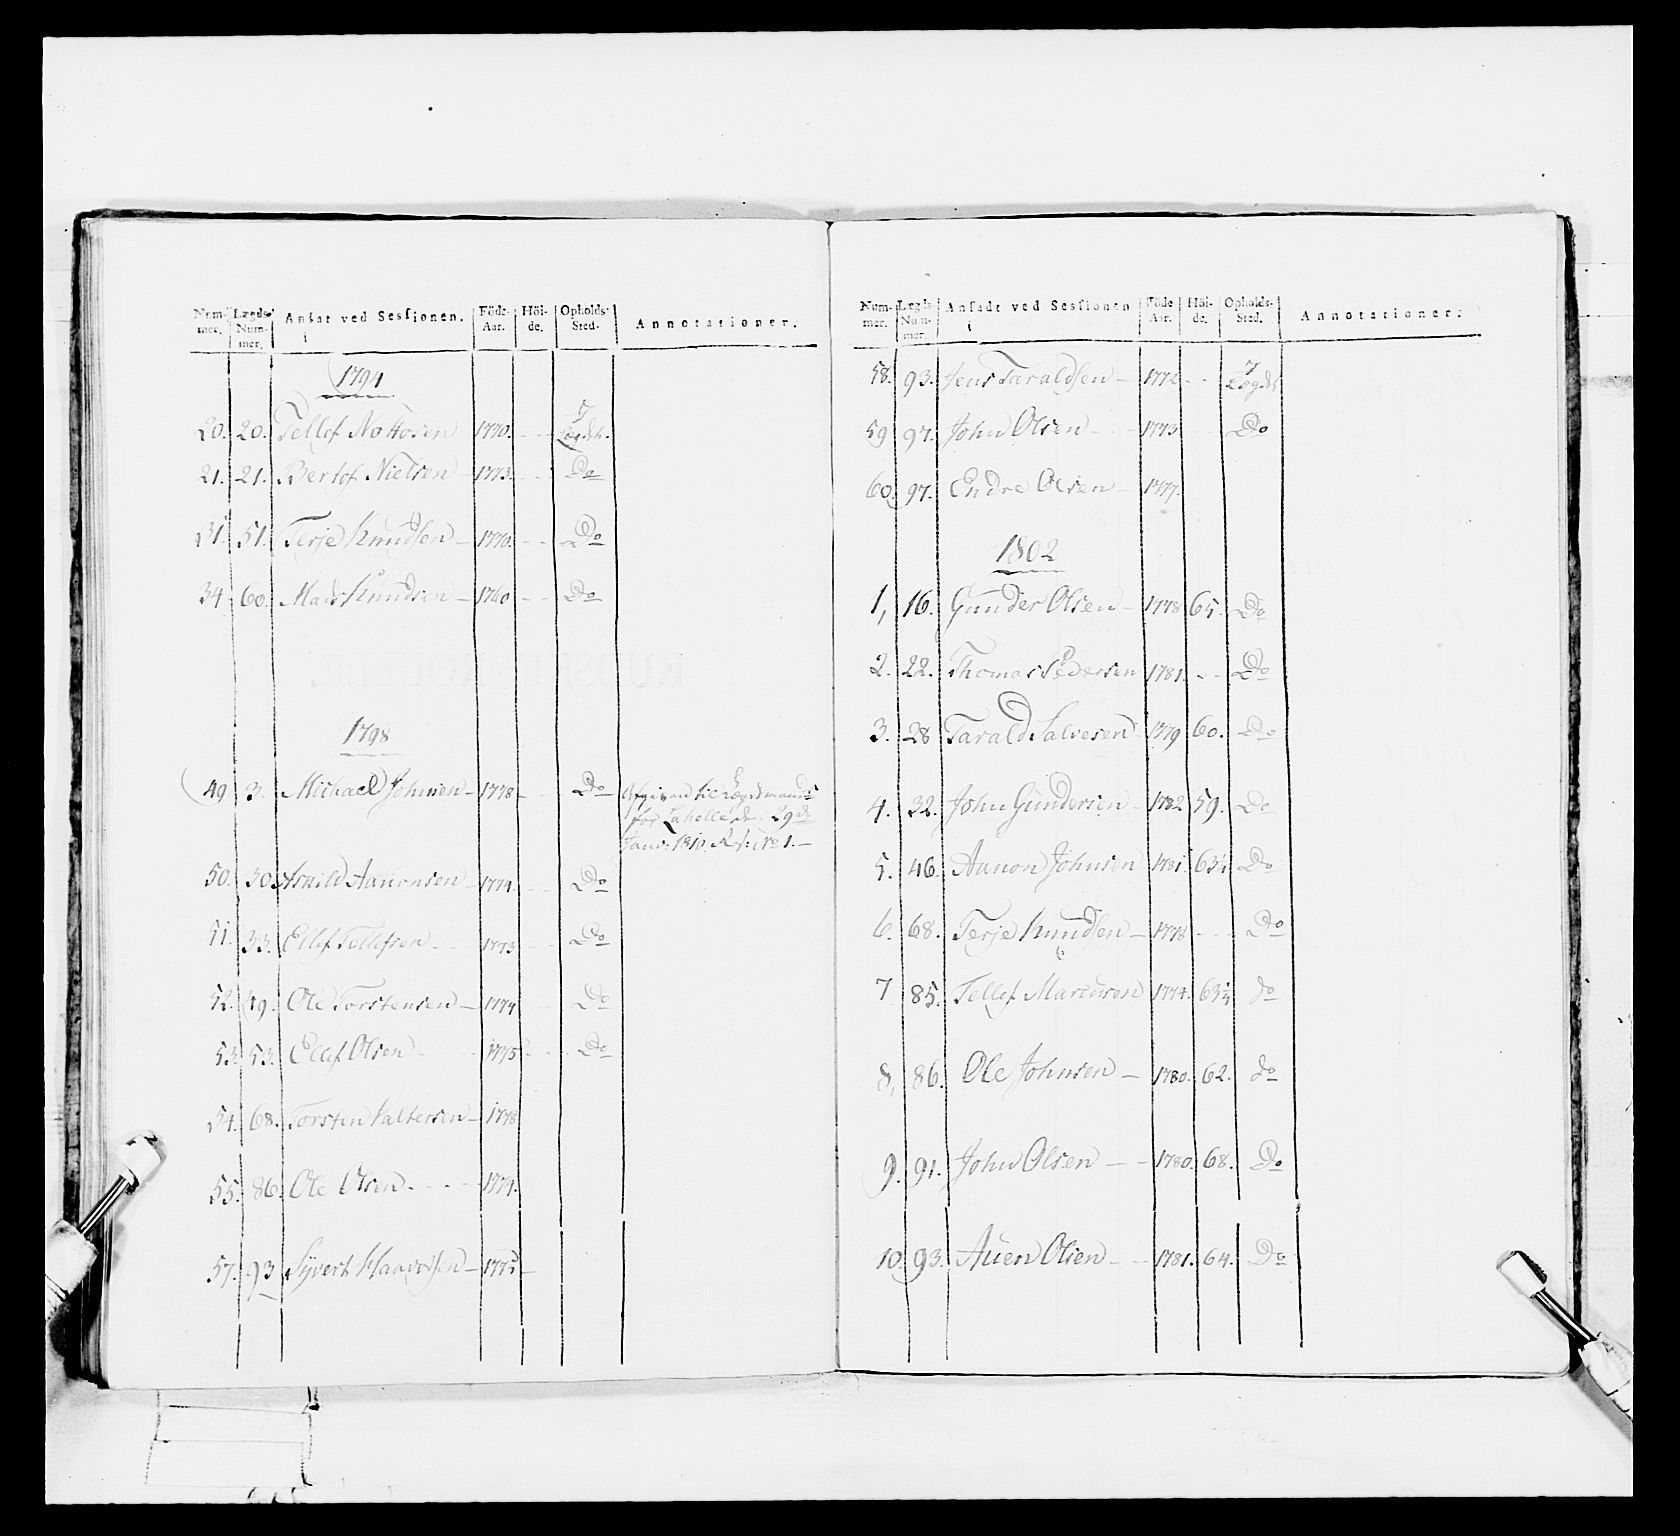 Num- mer. Lægds- Num- mer. Ansat ved Sessionen. i Föde- Aar. Höi- de. Opholds- Sted. Annotationer.
1794
20. 20. Tellef Nottosen 1770. - - i Lægdet.
21. 21. Bertof Nielsen - 1773. - - Do
31. 51. Terje Knudsen - 1770. - - Do
34. 60. Mads Knudsen - 1760 - - Do
1798
49 3. Michael Johnsen - 1778 - Do Afgivend til Lægdsmands
for den 29de
Janv: 1810. No 1. -
50. 30. Asuld Aanonsen - 1774. - - Do
51. 33. Ellef Tellefsen - - 1773 - - Do
52. 49. Ole Torstensen - 1774 - Do
53. 53. Ellef Olsen - - 1775 - - Do
54. 68. Torsten Kaltersen - 1778
55. 86. Ole Olsen - - - 1774.
57. 93 Syvert - 1775 -
Num- mer. Lægds- Num- mer. Ansadt ved Sessionen i Föde Aar. Höi- de. Opholds- Sted. Annotationer.
58. 93. Jens Taraldsen - 1772 - - i Lægdet
59 97. John Olsen - - 1773 - - Do
60. 97. Endre Olsen - 1777.
1802
1, 16. Gunder Olsen - 1778 65. Do
2. 22. Thomas Pedersen 1781. - - Do
3. 28 Tarald Salvesen - 1779 60. Do
4. 32. John Gundersen - 1782 59. Do
5. 46. Aanon Johnsen 1781 63½ Do
6. 68. Terje Knudsen - 1778 - - - Do
7 85. Tellef Marcusen 1774. 63¼ do
8, 86. Ole Johnsen - 1780. 62. do
9. 91. John Olsen - - 1780. 68. Do
10. 93. Auen Olsen - - 1781. 64. Do